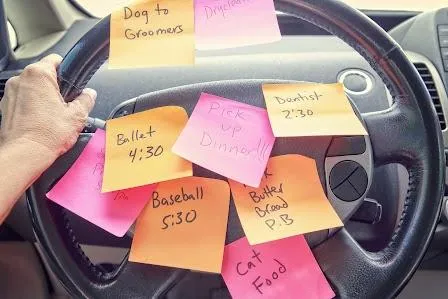 Dog to
Groomers
Dryclean
Dentist
2:30
Pick
up
Dinner!!!
Ballet
4:30
Baseball
5:30
Butter
Bread
P.B
Cat
Food